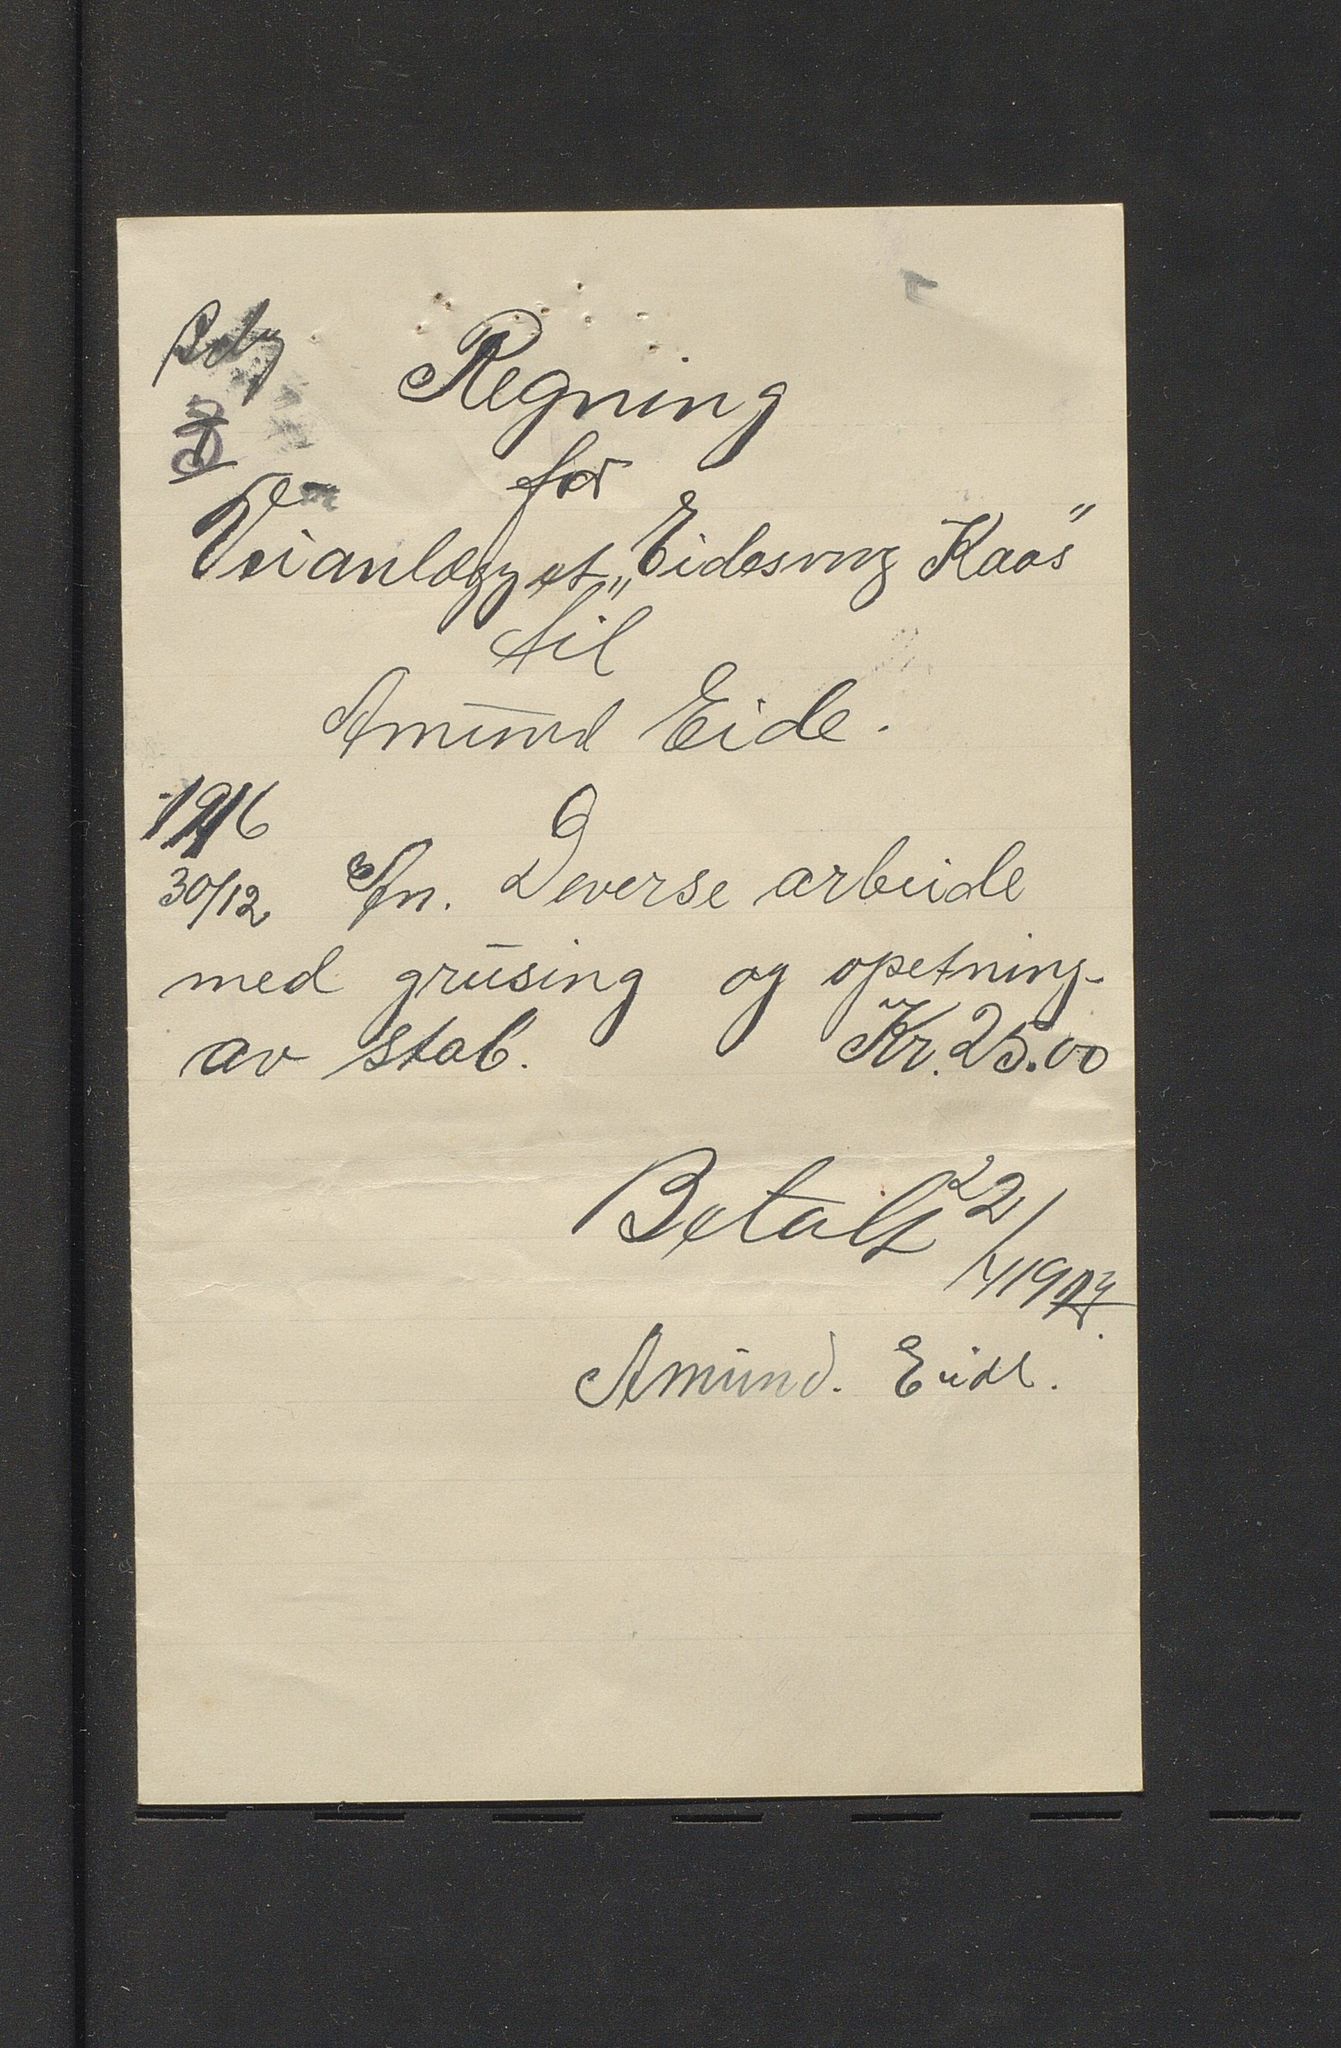 Regning
for
Veianlægget „Eidesvog Kaas"
til
Amund Eide.
1916
30/12 An. Deverse arbeide
med grusing og opetning
av stab. Kr. 25.00
Betalt 22/4 1917.
Amund. Eide.